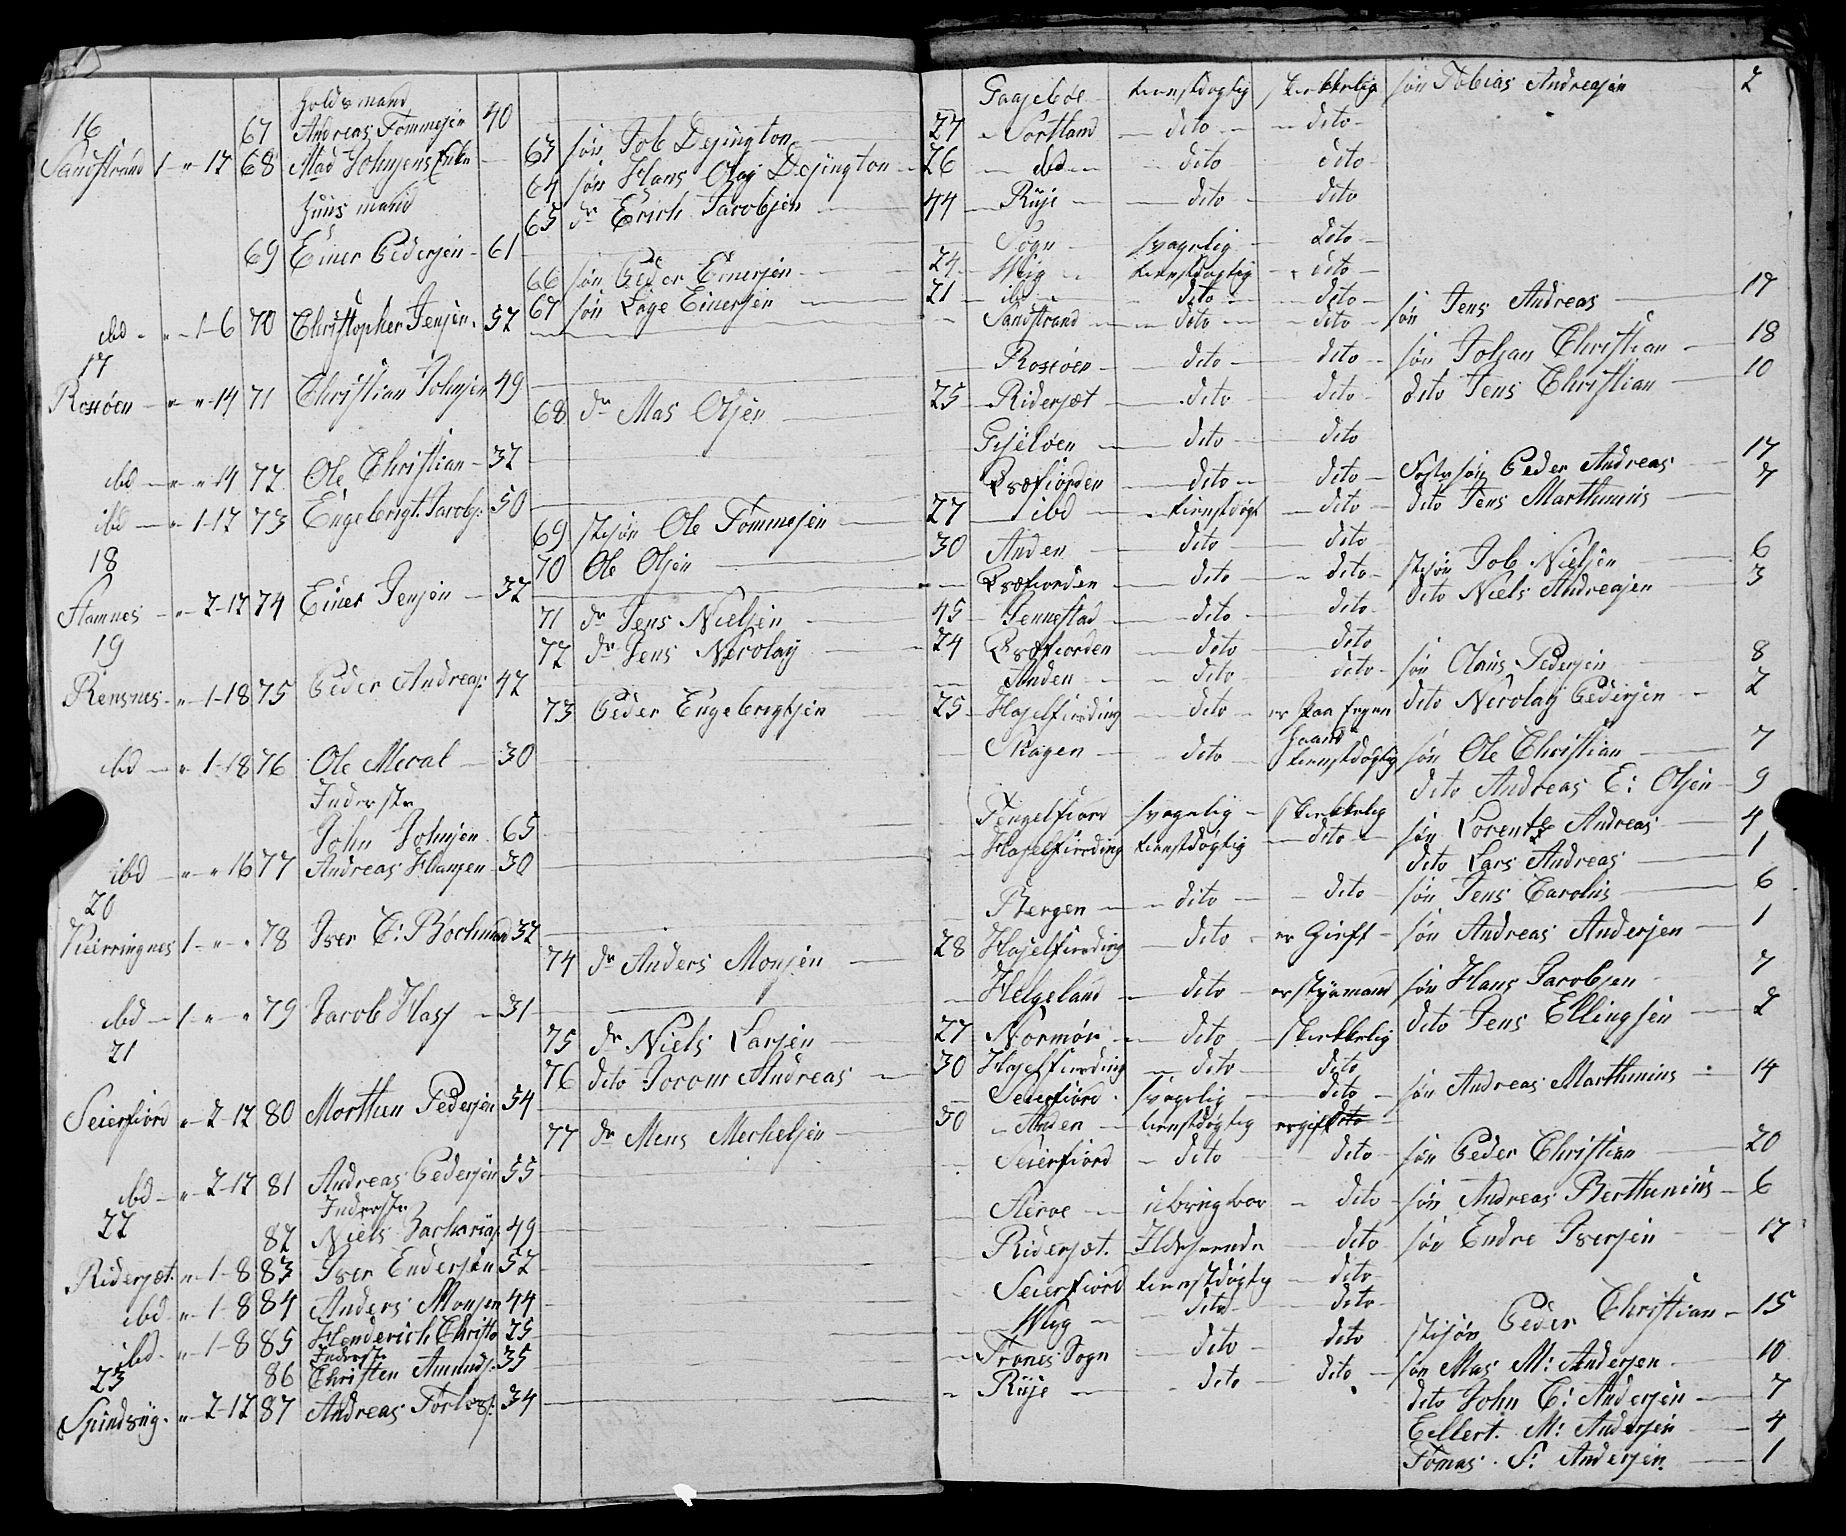 holdsmand
16 67 Andreas Tommesen 40
Sandstrand 1 - " 17 68 Mad Johnsens Enke 63 søn Job Dejington 27 Sortland dito dito
64 søn Hans Olaj Dejington 26 dito dito
Huus mand 65 dr Erich Jacobsen 44 Riise dito dito
69 Einer Pedersen 61 Sogn svagelig dito
66 søn Peder Einersen 24 tienstdøgtig dito
67 søn Lage Einersen 21 ibd dito dito
ibd " 1-6 70 Christopher Jensen 52 Sandstrand dito dito søn Jens Andreas 17
17
Rosøen " " 14 71 Christian Johnsen 49 Rosøen dito dito søn Johan Christian 18
68 dr Mas Olsen 25 Ridersæt dito dito dito Jens Christian 10
ibd " " 14 72 Ole Christian 32 dito dito
ibd " 1-17 73 Engebrigt Jacobs: 50 dito dito Peder Andreas 17
69 stisøn Ole Tommesen 27 ibd tienstdøgt dito dito Jens Marthinus 7
18 70 Ole Olsen 30 Anden dito dito
Stamnes " 2-12 74 Einer Jensen 32 dito dito stisøn Job Nielsen 6
71 dr Jens Nielsen 45 Jennestad dito dito dito Niels Andreasen 3
19 72 dr Jens Nicolay 24 dito dito
Rensnes " 1-18 75 Peder Andreas: 42 Anden dito dito søn Olaus Pedersen 8
73 Peder Engebrigtsen 25 Haselfiording dito er paa Egen Haand dito Nicolay Pedersen 2
ibd " 1-18 76 Ole Meval 30 Skagen dito tienstdøgtig søn Ole Christian 7
Inderste dito Andreas E: Olsen 9
John Johnsen 65 Tengelfiord svagelig skikkelig
ibd " " 16 77 Andreas Hansen 30 Haselfiording tienstdøgtig dito søn Lorentz Andreas 4
dito Lars Andreas 1
20
Kierringnes 1 - " " 78 Iver C: Bochmand 32 Bergen dito dito søn Jens Carolus 6
74 dr Anders Monsen 28 Haselfiording dito er Gieft søn Andreas Andersen 1
ibd 1 " " 79 Jacob Hass 31 Helgeland dito er styrmand søn Hans Jacobsen 7
21 75 dr Niels Larsen 27 Normør dito skikkelig dito Jens Ellingsen 2
76 dito Joram Andreas 30 Haselfiording dito dito
Seierfiord " 2-12 80 Morthen Pedersen 54 Seierfiord svagelig dito søn Andreas Marthinus 14
77 dr Mens Mechelsen 30 Anden tienstdøgtig er gift
ibd " 2-12 81 Andreas Pedersen 55 Seierfiord dito dito søn Peder Christian 20
22 Inderste
82 Niels Zacharias: 49 dito søn Andreas Berthunius 6
Ridersæt " 1-8 83 Iver Endersen 52 Ridersæt dito søn Endre Iversen 12
ibd " 1-8 84 Anders Monsen 44 Seierfiord tienstdøgtig dito
ibd " 1-8 85 Henderich Christo 25 dito dito stisøn Peder Christian 15
23 Inderste
86 Christen Amunds: 35 Tranes Sogn dito dito
87 Andreas Torles: 34 Riise dito dito søn Mas M: Andersen 10
" 2-12 dito John C: Andersen 7
Ellert M: Andersen 4
Tomas S: Andersen 1
Gaasebøe tienstdøgtig skikkelig søn Tobias Andreasen 2